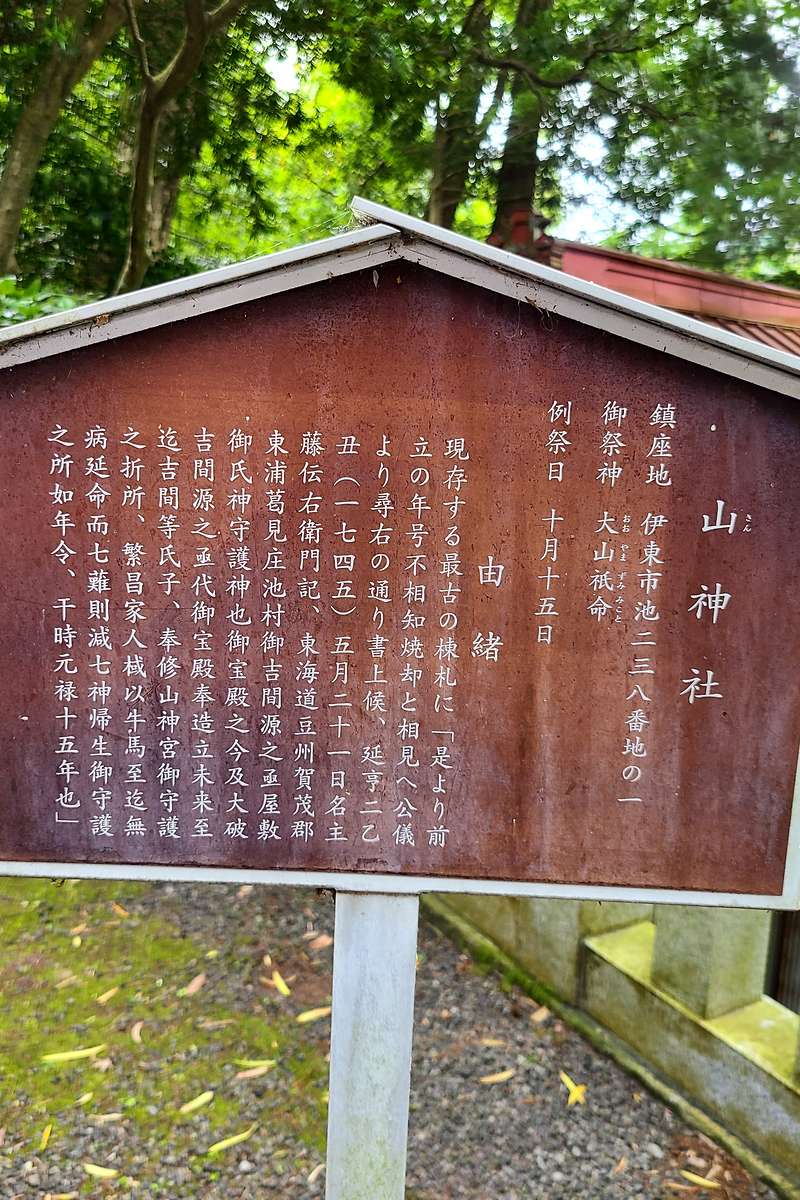 山神社
さん
鎮座地 伊東市池二三八番地の一
御祭神 大山祇命
おおやまずみみこと
例祭日 十月十五日
由緒
現存する最古の棟札に「是より前
立の年号不相知焼却と相見へ公儀
より尋右の通り書上候、延亨二乙
丑（一七四五）五月二十一日名主
藤伝右衛門記、東海道豆州賀茂郡
東浦葛見庄池村御吉間源之亟屋敷
御氏神守護神也御宝殿之今及大破
吉間源之亟代御宝殿奉造立未来至
迄吉間等氏子、奉修山神宮御守護
之折所、繁昌家人械以牛馬至迄無
病延命而七難則減七神帰生御守護
之所如年令、干時元禄十五年也」